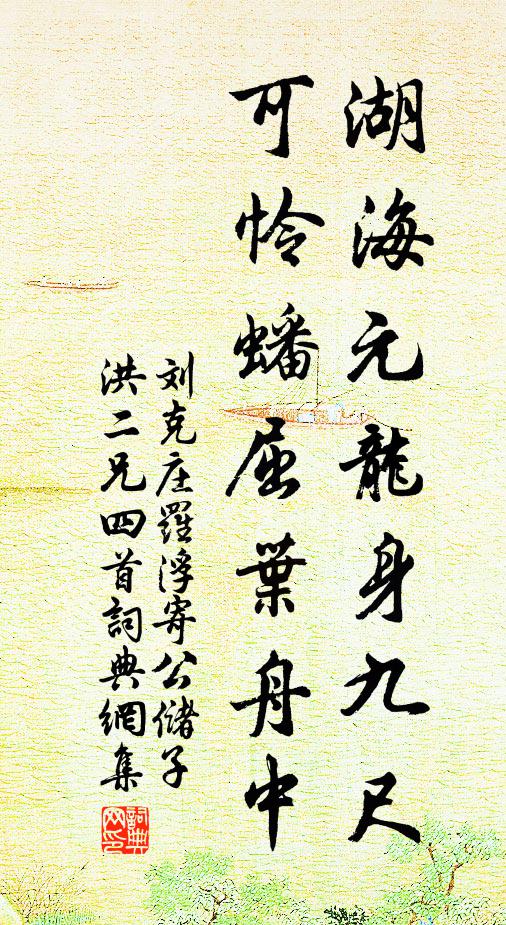 湖海元龍身九尺
可怜蟠屈葉舟中
刘克庄羅浮寄公儲子
洪二兄四首詞典網集
詞典
网印